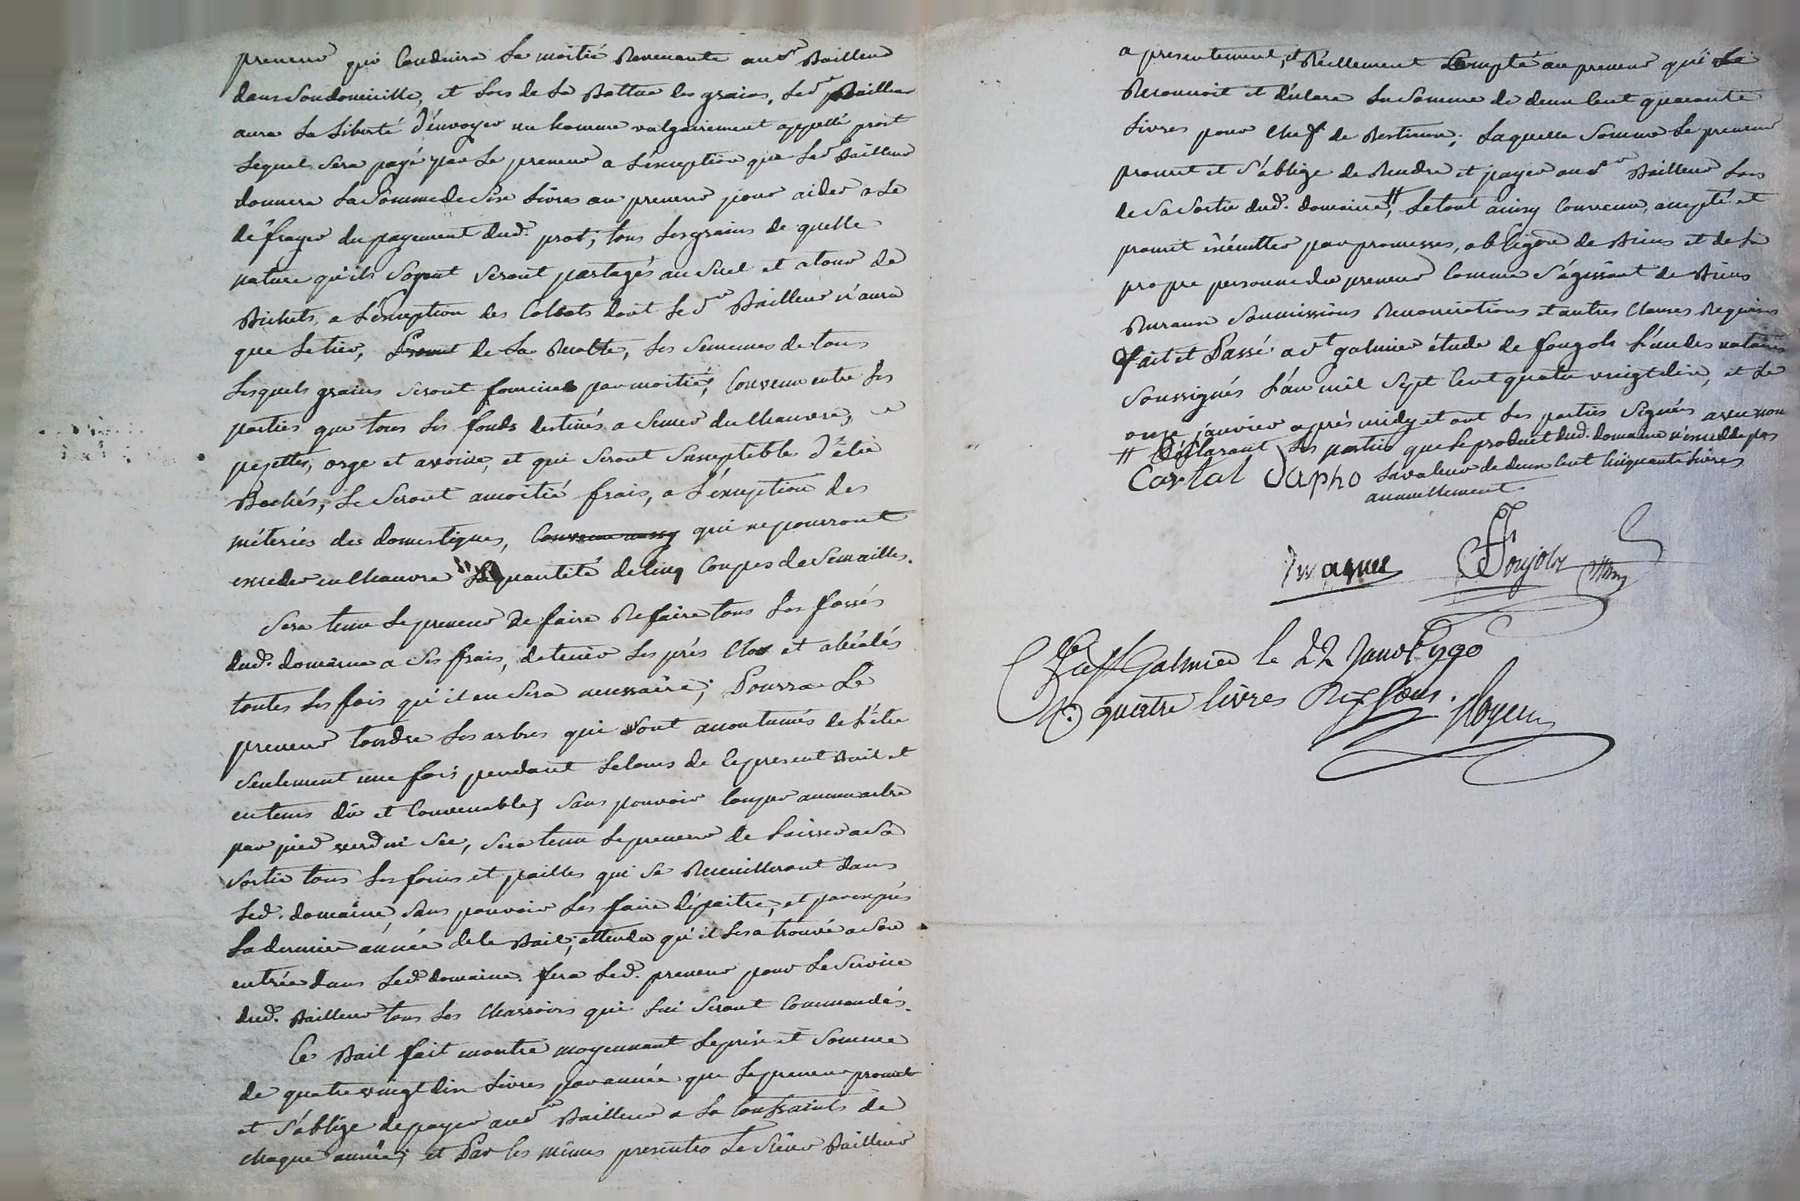 preneur qui Conduira La moitié Revenante aud. Sr Bailleur
dans Son domicille, et Lors de La Battue des grains, Led. Sr Bailleur
aura La Liberté d'énvoyer un homme vulgairement appellé prot
Lequel Sera payé par Le preneur a L'éxception que Led. Sr Bailleur
donnera La Somme de Six Livres au preneur pour aider a Le
défrayer du payement dud. prot, tous Les grains de quelle
nature qu'ils Soyent Seront partagés au Suel et atour de
Bichets, a L'éxception des Colsats dont Le Sr Bailleur n'aura
que Le tier, de La Recolte, Les Semences de tous
Lesquels grains Seront fournies par moitié; Convenu entre Les
parties que tous Les fonds destinés a Semer du Chauvre,
pezettes, orge et avoine, et qui Seront Susceptible d'étre
Bechés, Le Seront amoitié frais, a L'éxception des
méteriés des domestiques, Convenu aussy qui ne pourront
exceder en Chauvre La quantité de Cinq Coupes de Semailles.
Sera tenu Le preneur de faire Refaire tous Les fossés
dud. domaine a Ses frais, de tenir Les prés Clos et
toutes Les fois qu'il en Sera necessaire; Pourra Le
preneur tondre Les arbres qui Sont accoutumés de L'étre
Seulement une fois pendant Le Cours de Le present Bail et
en tems dû et Convenable, Sans pouvoir Couper aucun arbre
par pied verd ni Sec, Sera tenu Le preneur de Laisser a Sa
Sortie tous Les foins et pailles qui Se Recueilleront dans
Led. domaine, Sans pouvoir Les faire dépaitre, et par exprés
La derniere année de Le Bail; attendu qu'il Les a trouvé a Son
entrée dans Led. domaine. fera Led. preneur pour Le Service
dud. Bailleur tous Les Charrois qui Lui Seront Commandés.
Ce Bail fait moyennant Le prix et Somme
de quatre vingt dix Livres par année que Le preneur promet
et S'oblige de payer aud. Sr Bailleur a La toussaints de
chaque année; et Par Les mêmes presentes Le Sieur Bailleur
a presentement, et Réellement Compté au preneur qui Le
Reconnoit et déclare La Somme de deux Cent quarante
Livres pour Chef de Bestiaux; Laquelle Somme Le preneur
promet et S'oblige de Rendre et payer aud. Sr Bailleur Lors
de Sa Sortie dud. domaine, # Le tout ainsy Convenu, accepté et
promit éxécutter par promesses, obligeon de Biens et de La
propre personne du preneur Comme S'agissant de Biens
Ruraux Soumissions Renonciations et autres Clauses Requises
fait et Passé a St galmier étude de foujols L'un des notaires
Soussignés L'an mil Sept Cent quatre vingt dix, et Le
onze janvier après midy et ont Les parties Signés avec nou
# Déclarant Les parties que Le produit dud. domaine n'excedde pas
Cartal Japho La valeur de deux Cent Cinquante Livres
annuellement.
Foujols
Galmier le 22 Janvr 1790
R. quatre livres dix Sous.